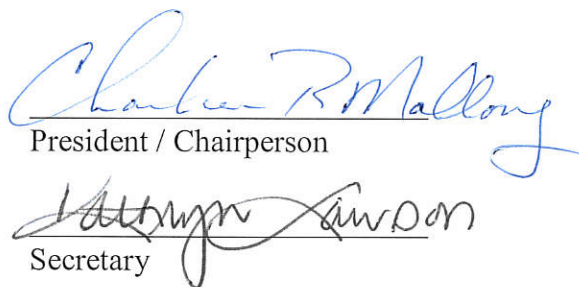 R Mallory
President / Chairperson
Kathryn Lawson
Secretary